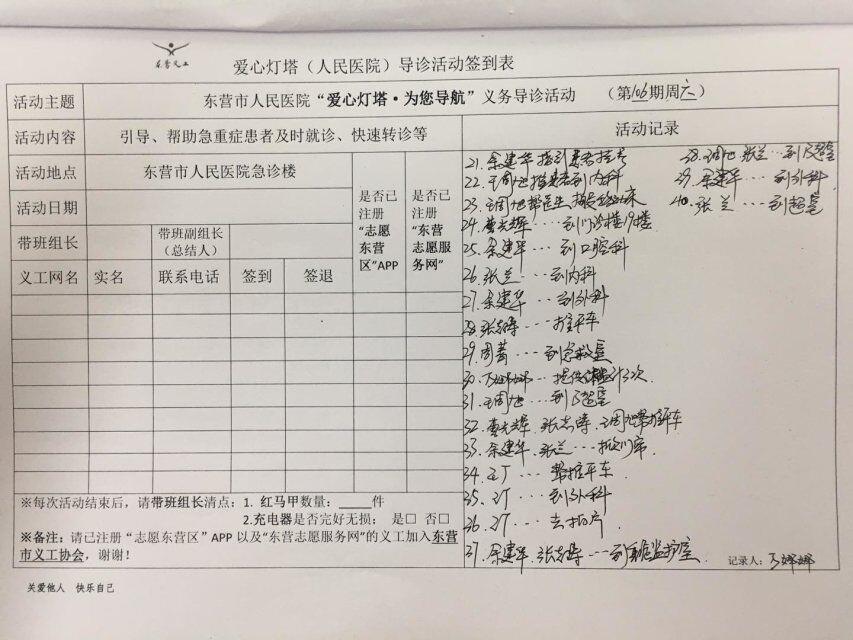 东营义工
爱心灯塔（人民医院）导诊活动签到表
活动主题
东营市人民医院“爱心灯塔·为您导航”义务导诊活动 （第106期周六）
活动内容
引导、帮助急重症患者及时就诊、快速转诊等
活动地点
东营市人民医院急诊楼
活动日期
带班组长
带班副组长
（总结人）
是否已
注册
“志愿
东营
区”APP
是否已
注册
“东营
志愿服
务网”
义工网名 实名 联系电话 签到 签退
※每次活动结束后，请带班组长清点：1. 红马甲数量：____件
2.充电器是否完好无损； 是□ 否□
※备注：请已注册“志愿东营区”APP 以及“东营志愿服务网”的义工加入东营
市义工协会，谢谢！
关爱他人 快乐自己
活动记录
21. 余建华指引患者挂号
22. 指患者到内科
23.
24. 曹光辉···到门诊楼19楼
25. 余建华···到口腔科
26. 张兰···到内科
27. 余建华···到外科
28. 张志涛···推平车
29. 周菁···到急救室
30. ···提供 3次.
31. ···到B超室
32. 曹光辉、张志涛、 帮推平车
33. 余建华、张兰···
34. 王丁···帮推平车
35. 王丁···到外科
36. 王丁···去
37. 余建华、张志涛···到 监护室
38. 张兰···到B超室
39. 余建华···到外科
40. 张兰···到超室
记录人：